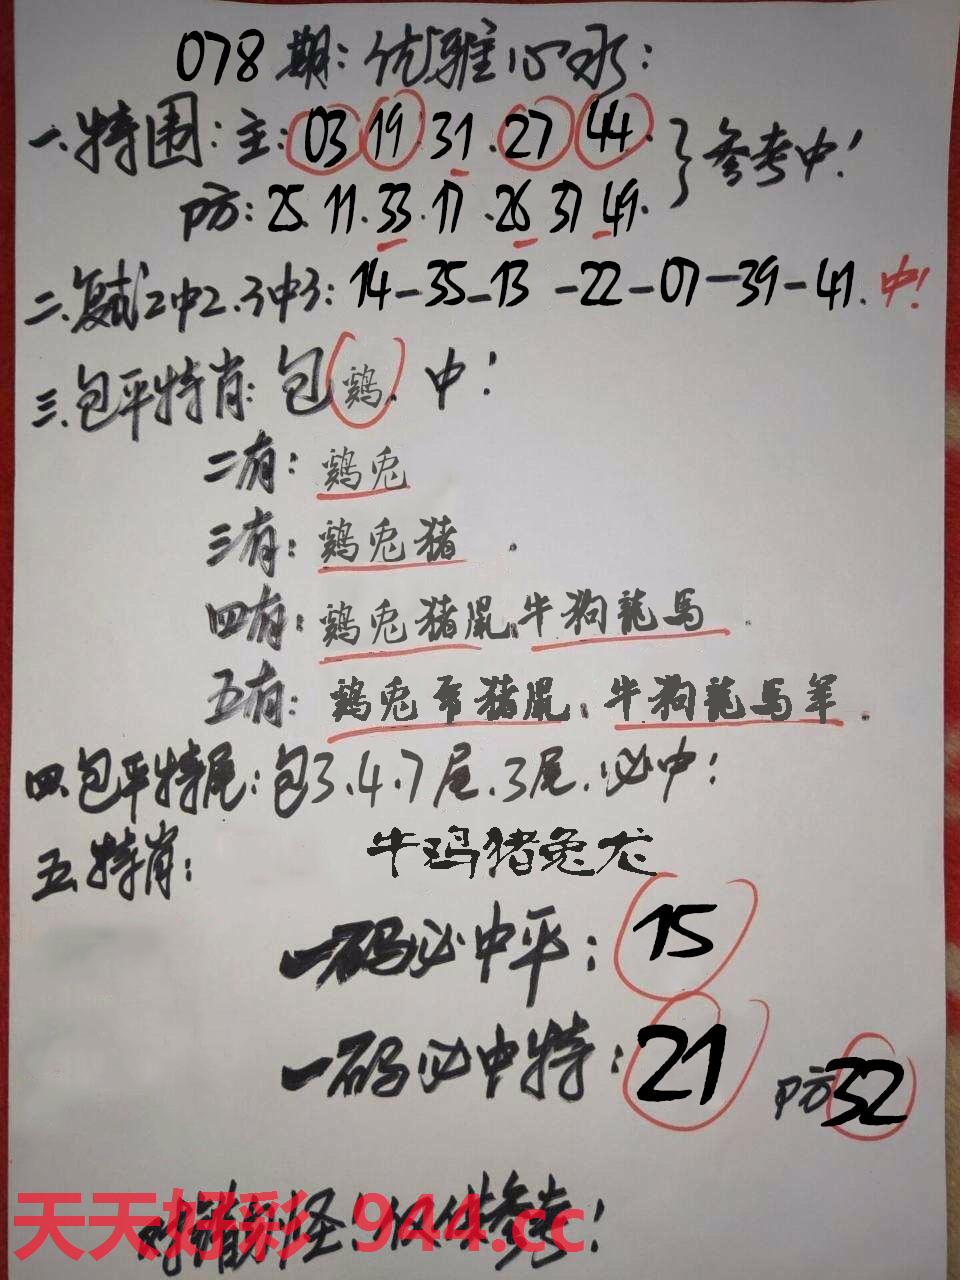 078期:优雅心水:
一.特围:主:03 19.31.27 44.
防:25.11.33.17.26 37 49.
参考中!
二.复式2中2.3中3:14-35-13-22-07-39-41.中!
三.包平特肖:包鷄.中!
二有:鷄兔
三有:鷄兔猪.
四有:鷄兔猪鼠.牛狗龍馬.
五有:鷄兔 猪鼠.牛狗龍馬羊.
四.包平特尾:包3.4.7尾.3尾.必中!
五.特肖:牛鸡猪兔龙
一码必中平:15
一码必中特:21 防32
对错别怪!仅供参考!
天天好彩.944.cc